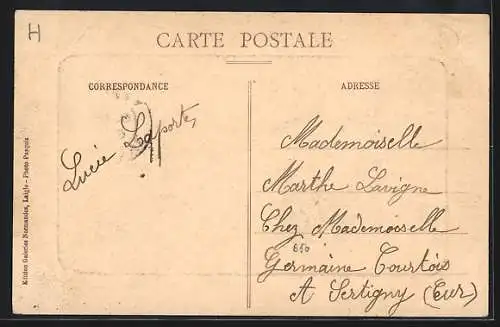 H
CARTE POSTALE
CORRESPONDANCE
ADRESSE
Lucie Laporte
Mademoiselle
Marthe Lavigne
Chez Mademoiselle
850
Germaine Courtois
A Sertigny (Eur)
Edition Galeries Normandes, Laigle - Photo